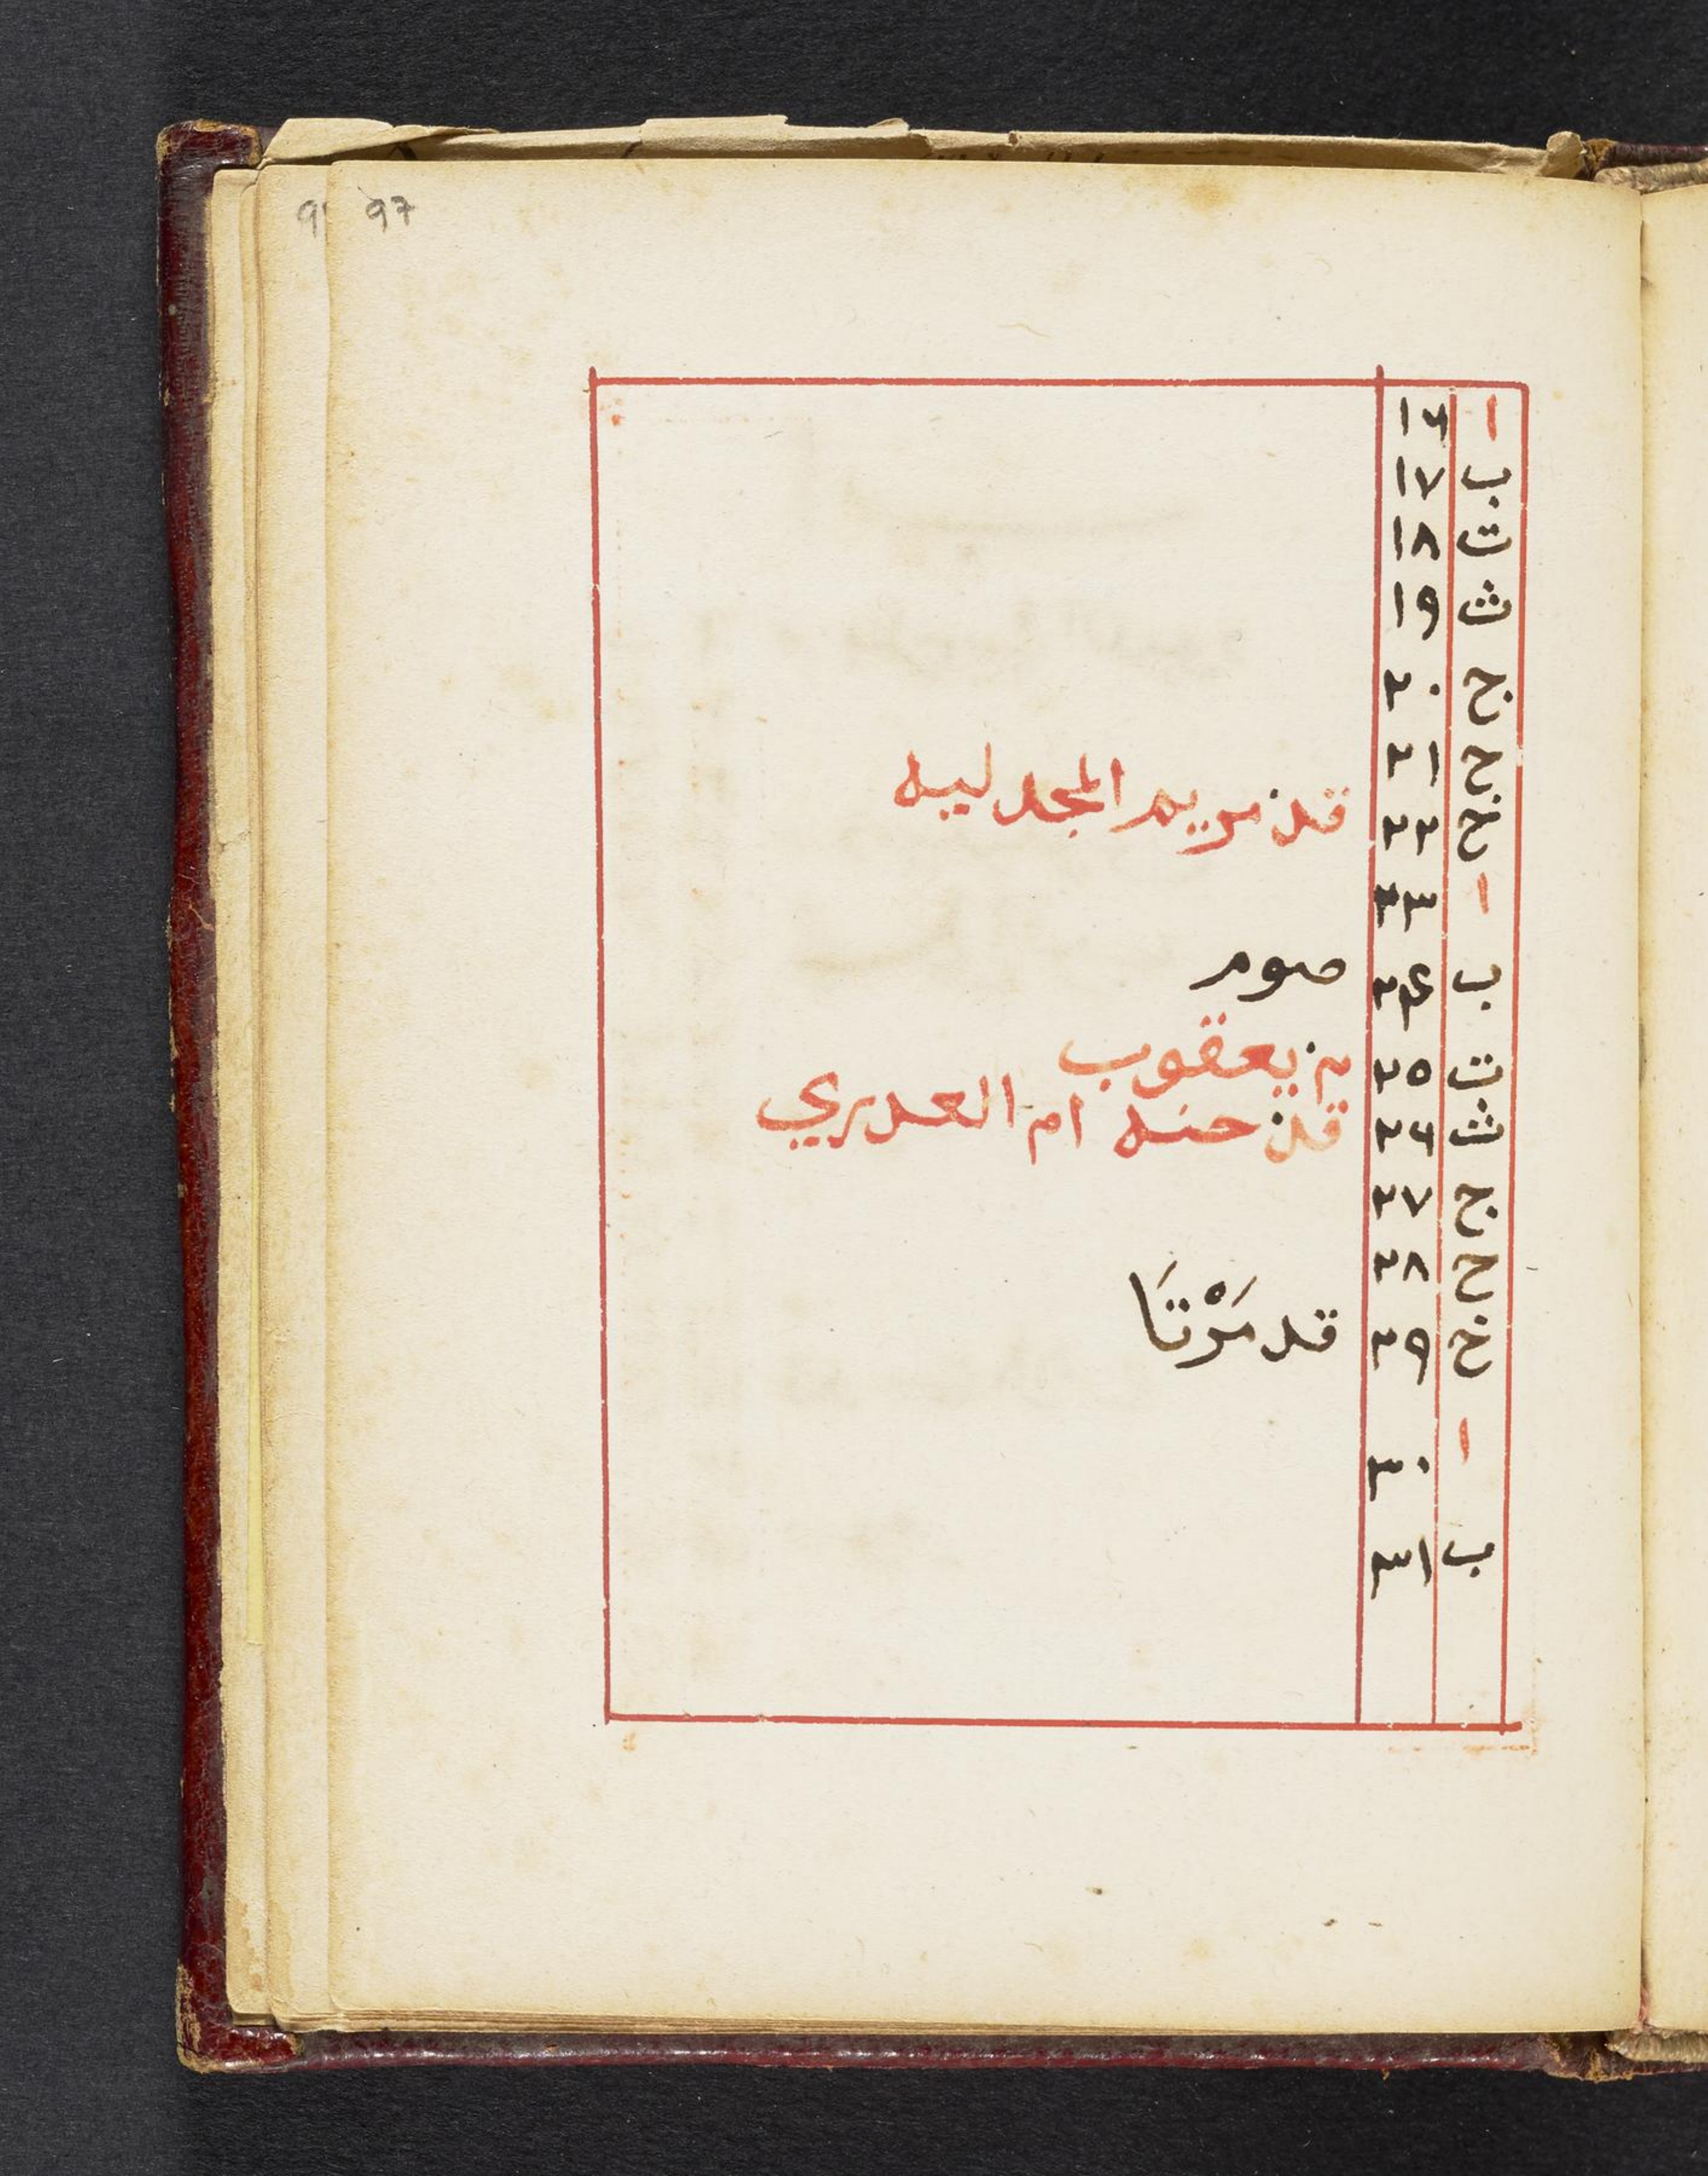 97
ا ١٦
ب ١٧
ت ١٨
ث ١٩
ج ٢٠
ح ٢١
خ ٢٢ قد مريم المجدليه
ا ٢٣
ب ٢٤ صوم
ت ٢٥ يعقوب
ث ٢٦ حنه ام العدري
ج ٢٧
ح ٢٨
خ ٢٩ قد مَرْتَا
ا ٣٠
ب ٣١